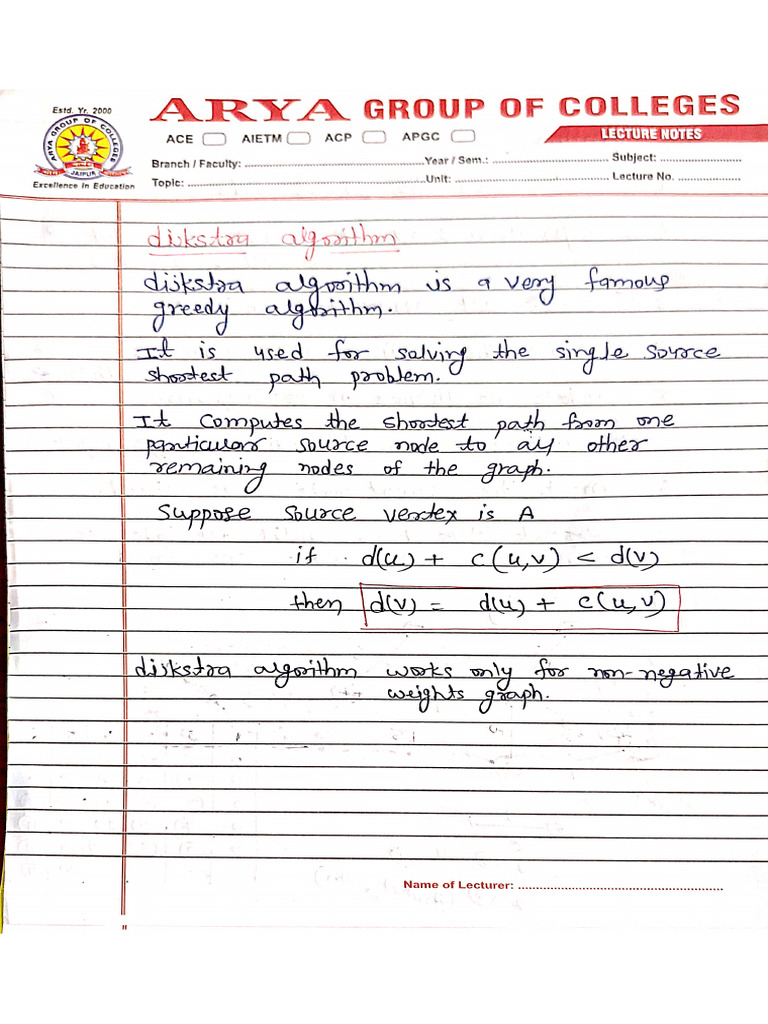 Estd. Yr. 2000
ARYA GROUP OF COLLEGES
ARYA GROUP OF COLLEGES
JAIPUR
Excellence in Education
ACE AIETM ACP APGC
LECTURE NOTES
Branch / Faculty: ........................ Year / Sem.: ........................ Subject: ........................
Topic: ........................ Unit: ........................ Lecture No. ........................
dijkstra algorithm
dijkstra algorithm is a very famous
greedy algorithm.
It is used for salving the single source
shortest path problem.
It computes the shortest path from one
particular source node to all other
remaining nodes of the graph.
Suppose source vertex is A
if d(u) + c(u,v) < d(v)
then d(v) = d(u) + c(u,v)
dijkstra algorithm works only for non-negative
weights graph.
Name of Lecturer: ........................